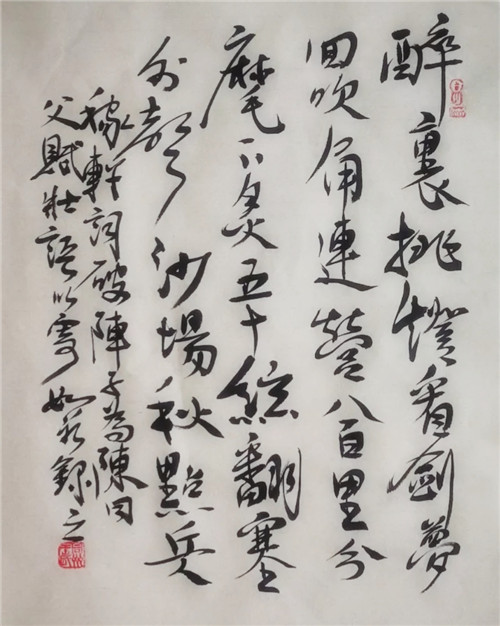 醉裏挑燈看劍夢
回吹角連營八百里分
麾下炙五十絃翻塞
外聲沙場秋點兵
稼軒詞破陣子為陳同
父賦壯語以寄如錄之